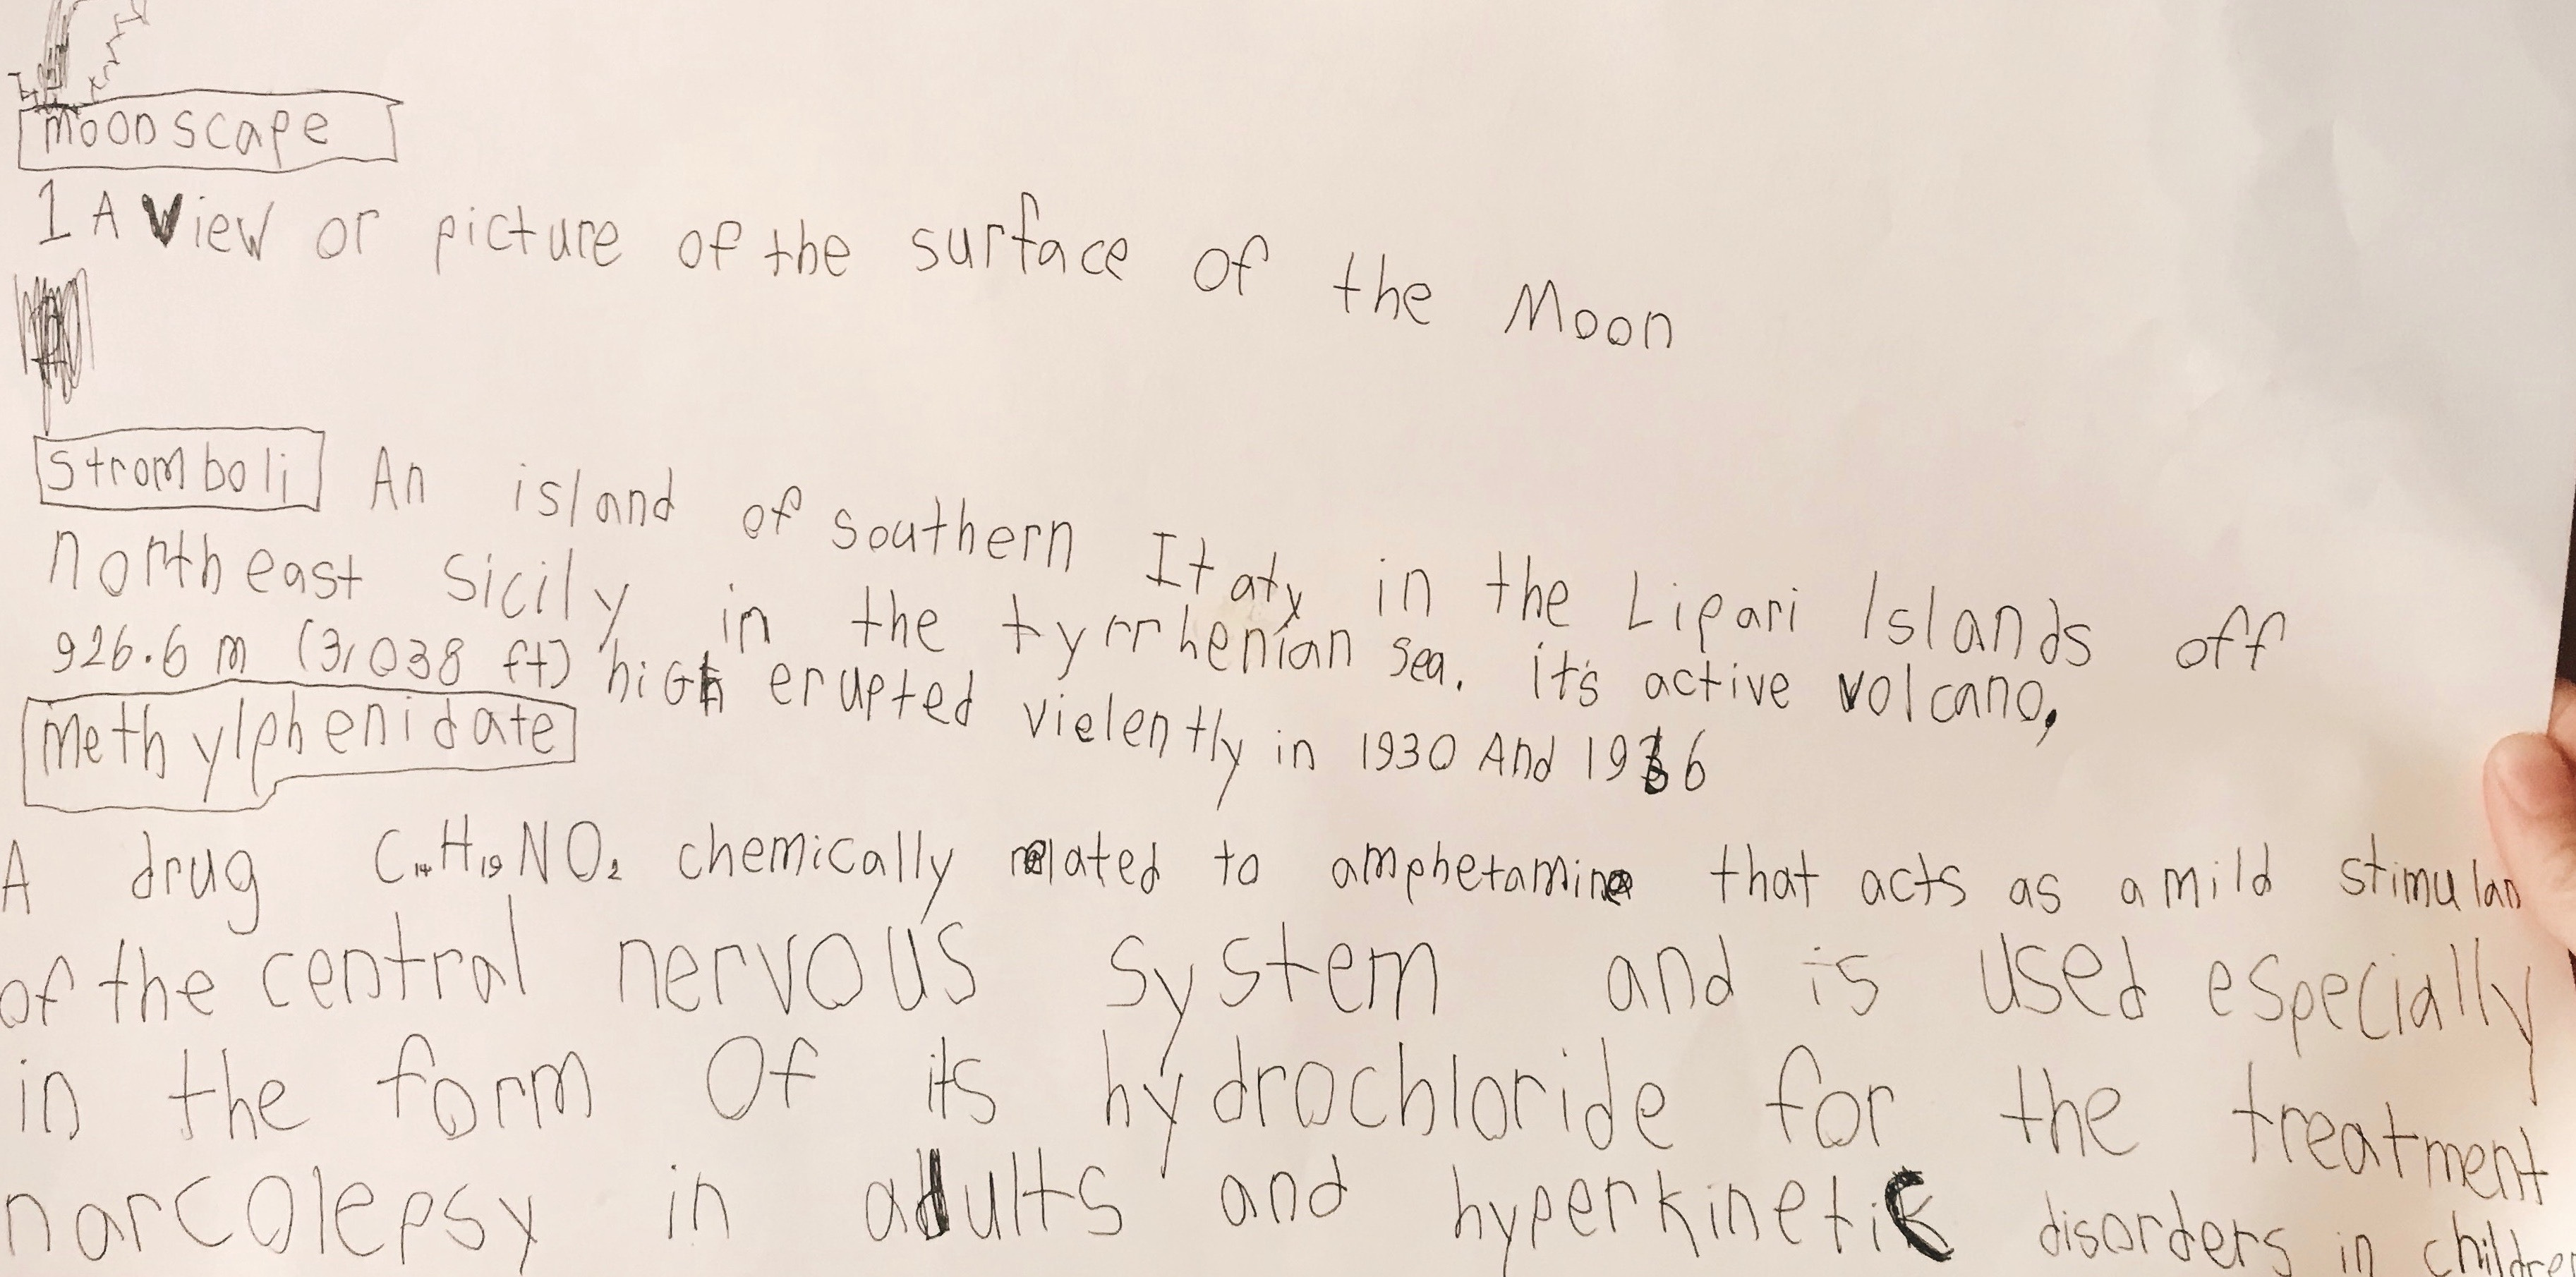 moonscape
1 A View or picture of the surface of the Moon
Stromboli An island of southern Italy in the Lipari Islands off
northeast Sicily in the tyrrhenian sea. it's active volcano,
926.6 m (3,038 ft) high erupted vielently in 1930 And 1966
methylphenidate
A drug C₁₄H₁₉NO₂ chemically related to amphetamine that acts as a mild stimulan
of the central nervous system and is used especially
in the form Of its hydrochloride for the treatment
narcolepsy in adults and hyperkinetic disorders in children